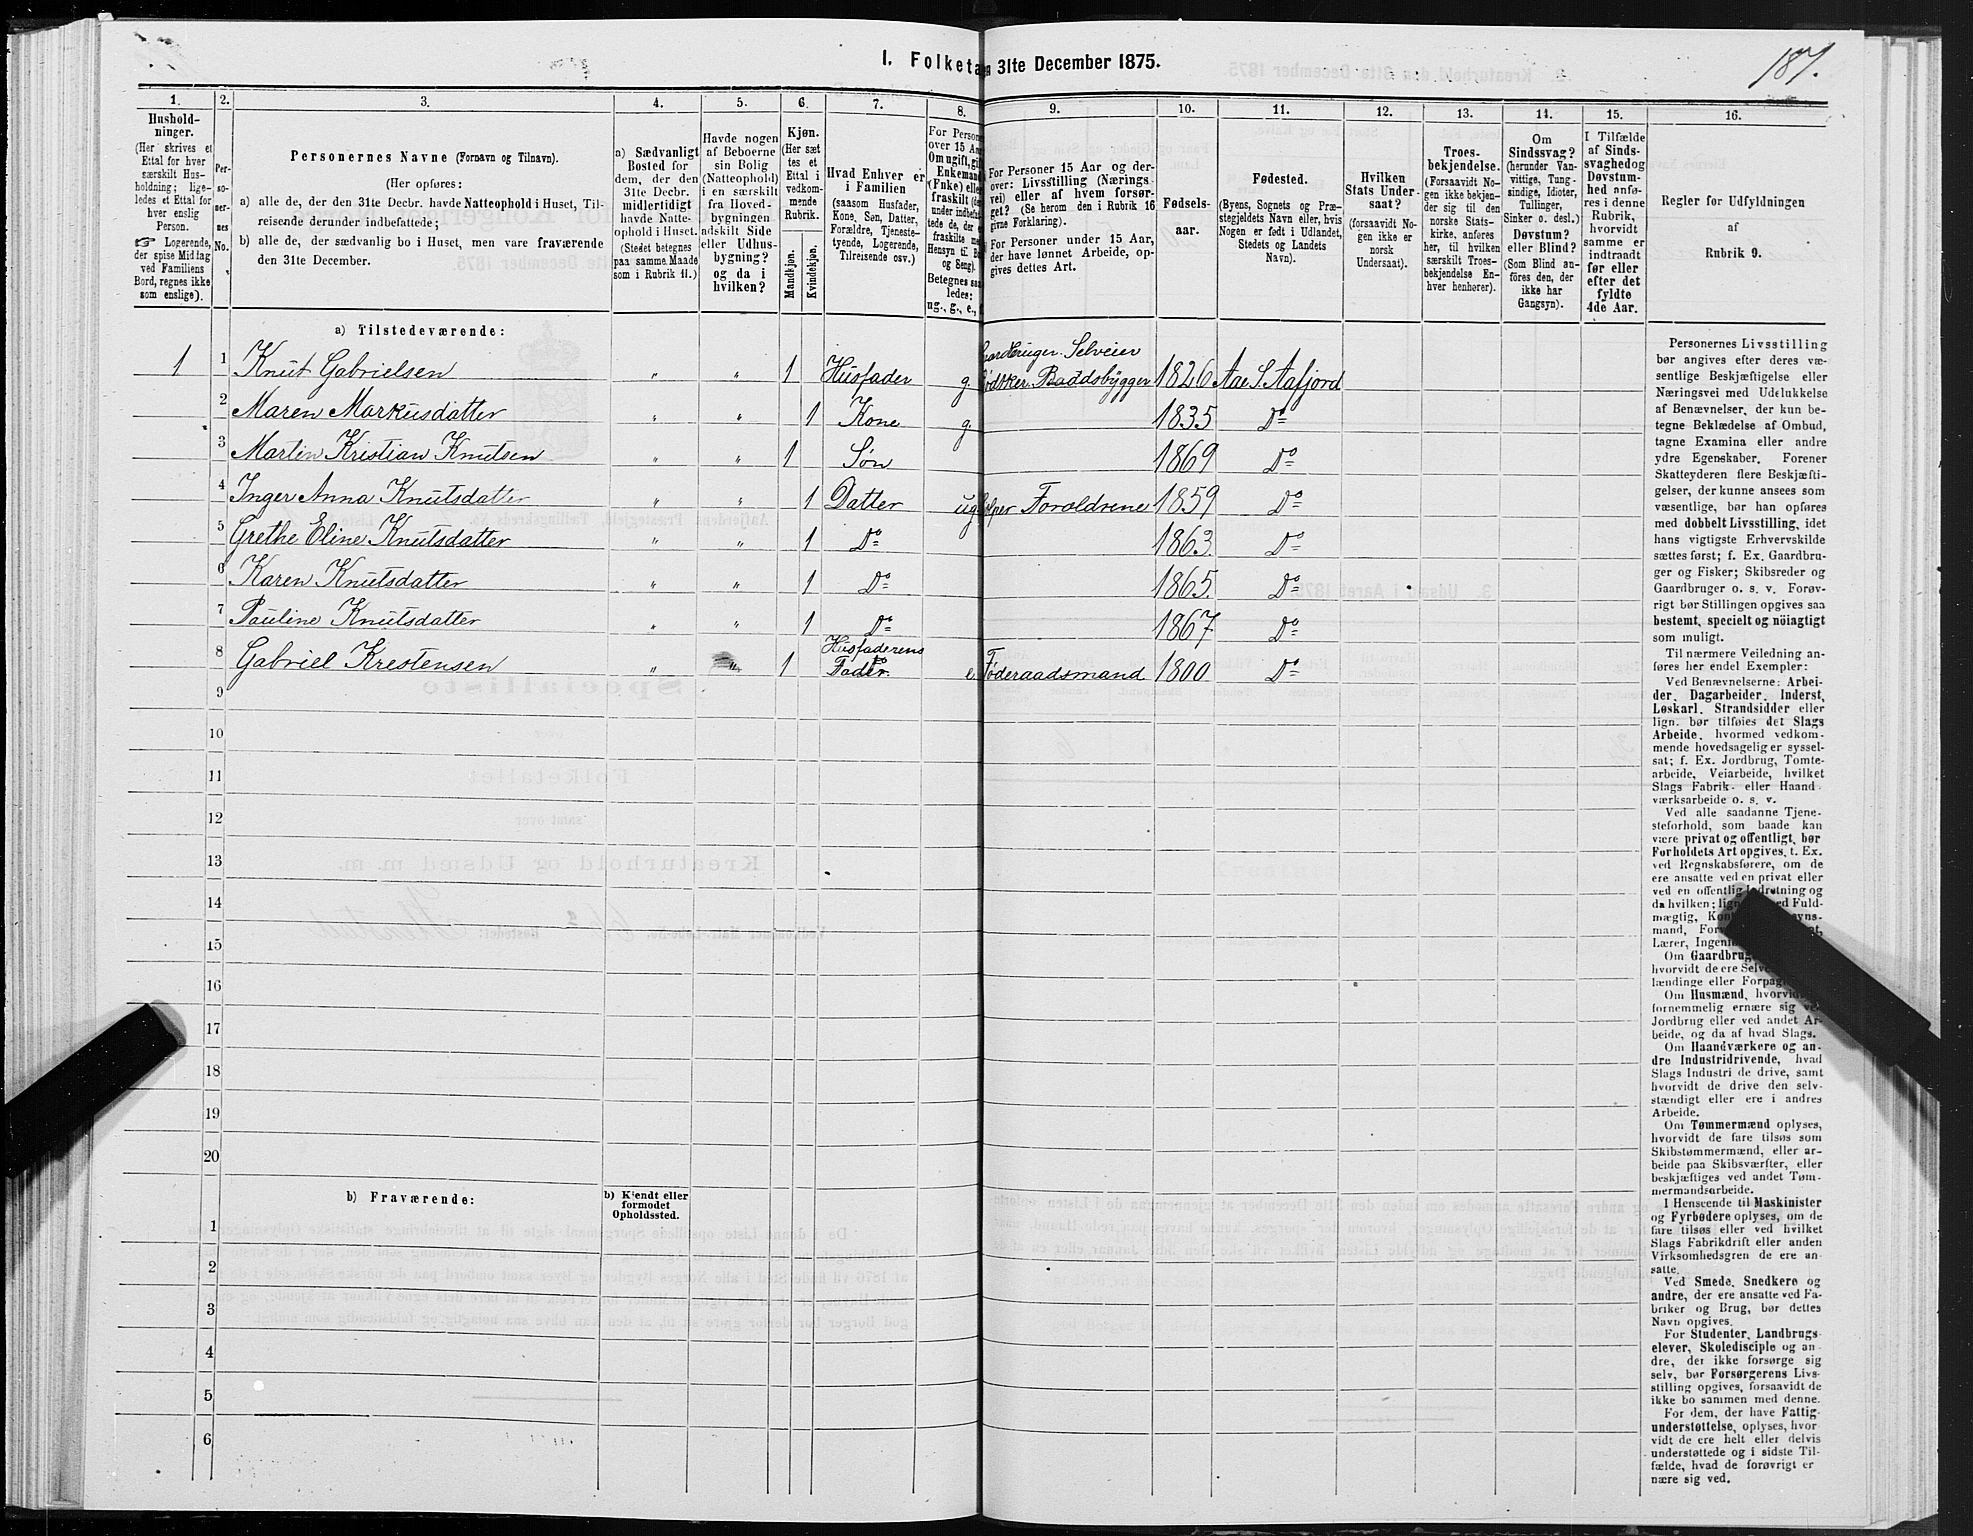 187.
I. Folketa en 31te December 1875.
1. 2. 3. 4. 5. 6. 7. 8. 9. 10. 11. 12. 13. 14. 15. 16.
Hushold-
ninger.
(Her skrives et
Ettal for hver
særskilt Hus-
holdning; lige-
ledes et Ettal for
hver enslig
Person.
☞ Logerende,
der spise Middag
ved Familiens
Bord, regnes ikke
som enslige).
Per-
so-
ner-
nes
No.
Personernes Navne (Fornavn og Tilnavn).
(Her opføres:
a) alle de, der den 31te Decbr. havde Natteophold i Huset, Til-
reisende derunder indbefattede;
b) alle de, der sædvanlig bo i Huset, men vare fraværende
den 31te December.
a) Sædvanligt
Bosted for
dem, der den
31te Decbr.
midlertidigt
havde Natte-
ophold i Huset.
(Stedet betegnes
paa samme Maade
som i Rubrik 11.)
Havde nogen
af Beboerne
sin Bolig
(Natteophold)
i en særskilt
fra Hoved-
bygningen
adskilt Side
eller Udhus-
bygning?
og da i
hvilken?
Kjøn.
(Her sæt
tes et
Ettal i
vedkom-
mende
Rubrik.
Mandkjøn.
Kvindekjøn.
Hvad Enhver er
i Familien
(saasom Husfader,
Kone, Søn, Datter,
Forældre, Tjeneste-
tyende, Logerende,
Tilreisende osv.)
For Person
over 15 Aa
Om ugift, gif
Enkemand
(Fnke) elle
under indbefat
tede de, der e
fraskilte me
Hensyn til Bo
og Seng).
Betegnes saa
ledes:
ug., g., e.,
For Personer 15 Aar og der-
over: Livsstilling (Nærings
vei) eller af hvem forsør-
get? (Se herom den i Rubrik 16
givne Forklaring).
For Personer under 15 Aar,
der have lønnet Arbeide, op-
gives dettes Art.
Fødsels-
aar.
Fødested.
(Byens, Sognets og Præ-
stegjeldets Navn eller, hvis
Nogen er født i Udlandet,
Stedets og Landets
Navn).
Hvilken
Stats Under-
saat?
(forsaavidt No-
gen ikke er
norsk
Undersaat).
Troes-
bekjendelse.
(Forsaavidt No-
gen ikke bekjen-
der sig til den
norske Stats-
kirke, anføres
her, til hvilken
særskilt Troes-
bekjendelse En-
hver henhører).
Om
Sindssvag?
(herunder Van-
vittige, Tung-
sindige, Idioter,
Tullinger,
Sinker o. desl.)
Døvstum?
eller Blind?
(Som Blind an-
føres den, der
ikke har
Gangsyn).
I Tilfælde
af Sinds-
svaghed og
Døvstum-
hed anfø-
res i denne
Rubrik,
hvorvidt
samme er
indtraadt
før eller
efter det
fyldte
4de Aar.
Regler for Udfyldningen
af
Rubrik 9.
a) Tilstedeværende:
Gaardbruger Selveier
1 1 Knut Gabrielsen " " 1 Husfader g. Fødsker. Baadsbygger 1826 Aae S. Aafjord
2 Maren Markusdatter " " 1 Kone g. 1835 Do
3 Martin Kristian Knutsen " " 1 Søn 1869 Do
4 Inger Anna Knutsdatter " " 1 Datter ug. Hjelper Forældrene 1859 Do
5 Grethe Eline Knutsdatter " " 1 Do 1863 Do
6 Karen Knutsdatter " " 1 Do 1865. Do
7 Pauline Knutsdatter " " 1 Do 1867 Do
Husfaderens
8 Gabriel Krestensen " " 1 Fader. e. Føderaadsmand 1800 Do
9
10
11
12
13
14
15
16
17
18
19
20
b) Fraværende:
b) Kjendt eller
formodet
Opholdssted.
1
2
3
4
5
6
Personernes Livsstilling
bør angives efter deres væ-
sentlige Beskjæftigelse eller
Næringsvei med Udelukkelse
af Benævnelser, der kun be-
tegne Beklædelse af Ombud,
tagne Examina eller andre
ydre Egenskaber. Forener
Skatteyderen flere Beskjæfti-
gelser, der kunne ansees som
væsentlige, bør han opføres
med dobbelt Livsstilling, idet
hans vigtigste Erhvervskilde
sættes først; f. Ex. Gaardbru-
ger og Fisker; Skibsreder og
Gaardbruger o. s. v. Forøv-
rigt bør Stillingen opgives saa
bestemt, specielt og nöiagtigt
som muligt.
Til nærmere Veiledning an-
føres her endel Exempler:
Ved Benævnelserne: Arbei-
der, Dagarbeider, Inderst,
Løskarl, Strandsidder eller
lign. bør tilføies det Slags
Arbeide, hvormed vedkom-
mende hovedsagelig er syssel-
sat; f. Ex. Jordbrug, Tomte-
arbeide, Veiarbeide, hvilket
Slags Fabrik- eller Haand-
værksarbeide o. s. v.
Ved alle saadanne Tjene-
steforhold, som baade kan
være privat og offentligt, bør
Forholdets Art opgives, t. Ex.
ved Regnskabsførere, om de
ere ansatte ved en privat eller
ved en offentlig Indretning og
da hvilken; lign ved Fuld-
mægtig, Kont yns-
mand, Forv
Lærer, Ingeni
Om Gaardbrug
hvorvidt de ere Selve
lændinge eller Forpag
Om Husmænd, hvorvid
fornemmelig ernære sig ved
Jordbrug eller ved andet Ar-
beide, og da af hvad Slags.
Om Haandværkere og an-
dre Industridrivende, hvad
Slags Industri de drive, samt
hvorvidt de drive den selv-
stændigt eller ere i andres
Arbeide.
Om Tømmermænd oplyses,
hvorvidt de fare tilsøs som
Skibstømmermænd, eller ar-
beide paa Skibsværfter, eller
beskjæftiges ved andet Tøm-
mermandsarbeide.
I Henseende til Maskinister
og Fyrbødere oplyses, om de
fare tilsøs eller ved hvilket
Slags Fabrikdrift eller anden
Virksomhedsgren de ere an-
satte.
Ved Smede, Snedkere og
andre, der ere ansatte ved Fa-
briker og Brug, bør dettes
Navn opgives.
For Studenter, Landbrugs-
elever, Skoledisciple og an-
dre, der ikke forsørge sig
selv, bør Forsørgerens Livs-
stilling opgives, forsaavidt de
ikke bo sammen med denne.
For dem, der have Fattig-
understøttelse, oplyses, hvor
vidt de ere helt eller delvis
understøttede og i sidste Til-
fælde, hvad de forøvrigt er
nære sig ved.